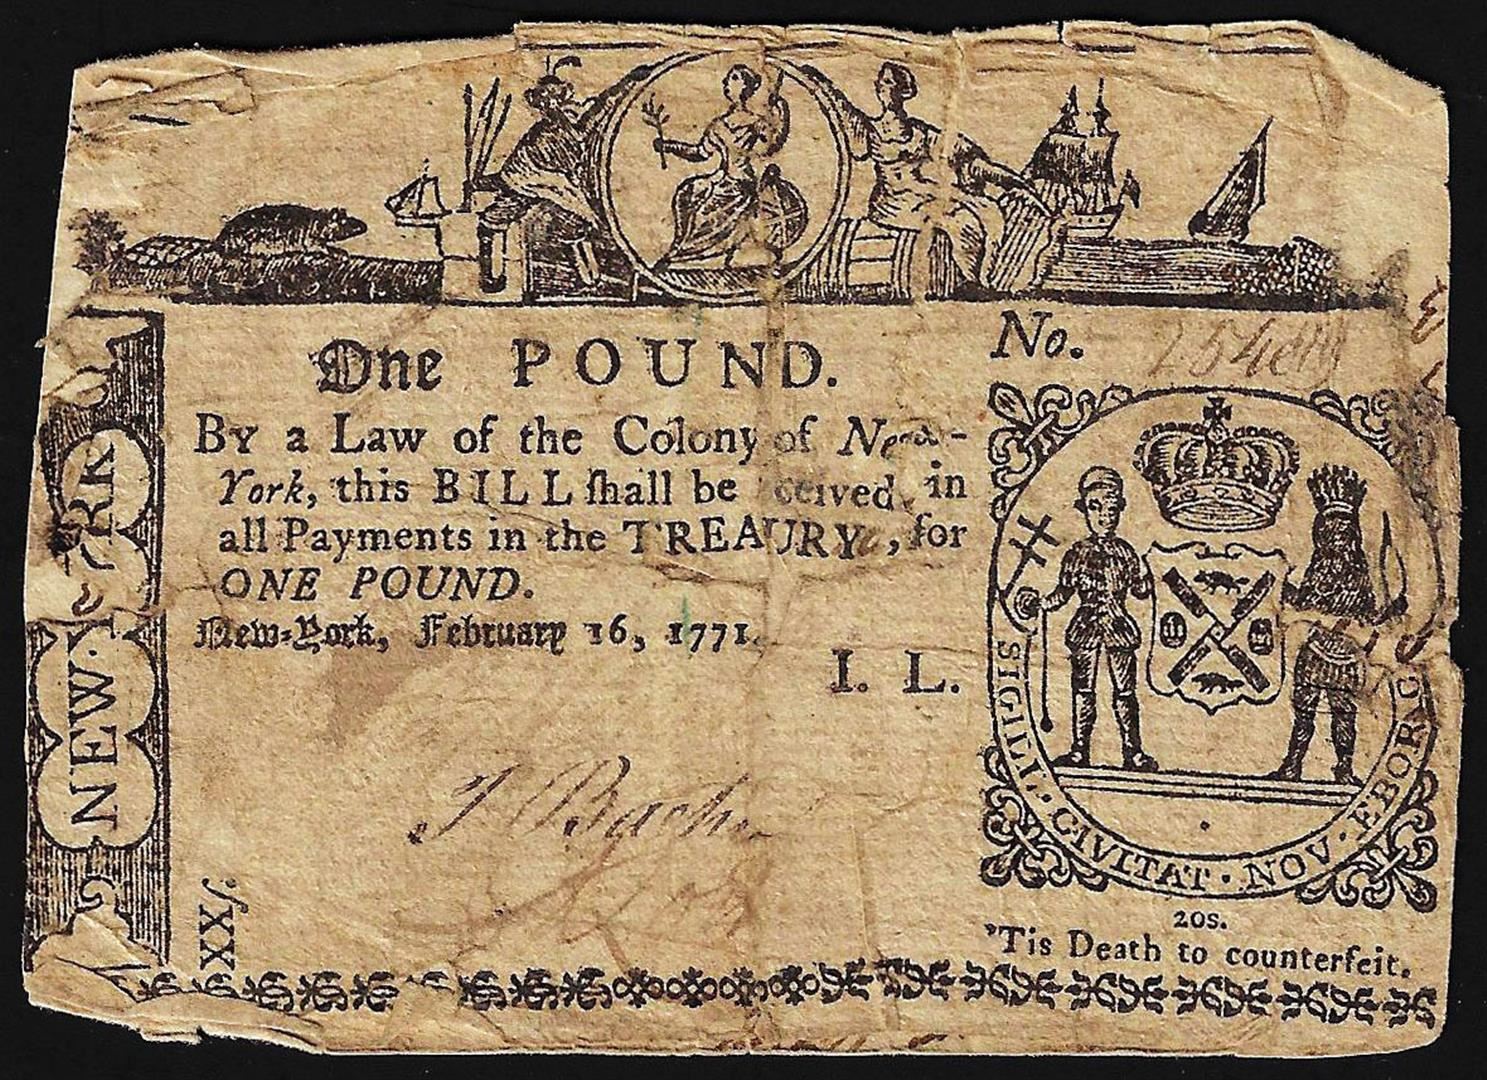 No.
One POUND.
By a Law of the Colony of New-
York, this BILL ſhall be ceived in
all Payments in the TREAURY, for
ONE POUND.
New-York, February 16, 1771.
I. L.
NEW-YORK
XXſ.
SIGILL · CIVITAT · NOV · EBORO
20s.
'Tis Death to counterfeit.